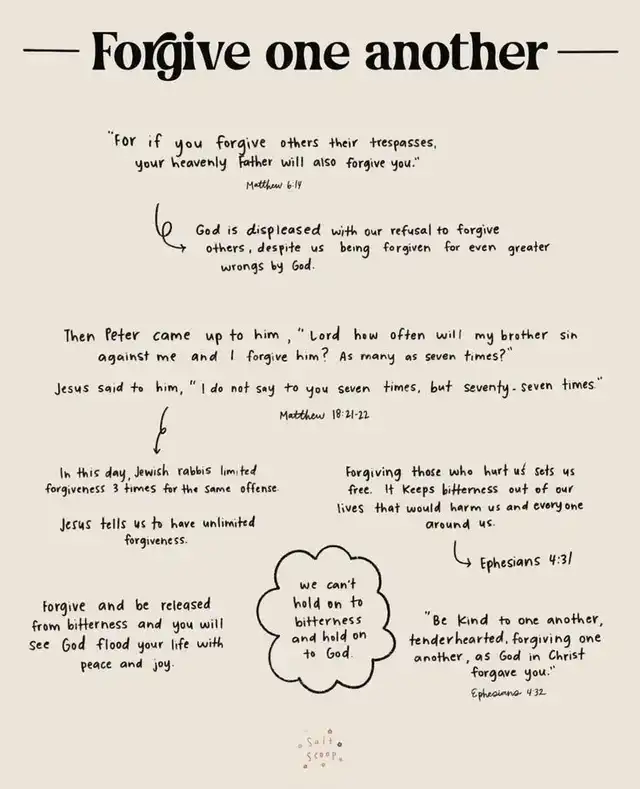 Forgive one another
"For if you forgive others their trespasses,
your heavenly Father will also forgive you."
Matthew 6:14
God is displeased with our refusal to forgive
others, despite us being forgiven for even greater
wrongs by God.
Then Peter came up to him, "Lord how often will my brother sin
against me and I forgive him? As many as seven times?"
Jesus said to him, "I do not say to you seven times, but seventy-seven times."
Matthew 18:21-22
In this day, Jewish rabbis limited
forgiveness 3 times for the same offense.
Jesus tells us to have unlimited
forgiveness.
Forgiving those who hurt us sets us
free. It keeps bitterness out of our
lives that would harm us and everyone
around us.
Ephesians 4:31
Forgive and be released
from bitterness and you will
see God flood your life with
peace and joy.
we can't
hold on to
bitterness
and hold on
to God.
"Be kind to one another,
tenderhearted, forgiving one
another, as God in Christ
forgave you."
Ephesians 4:32
Salt
Scoop